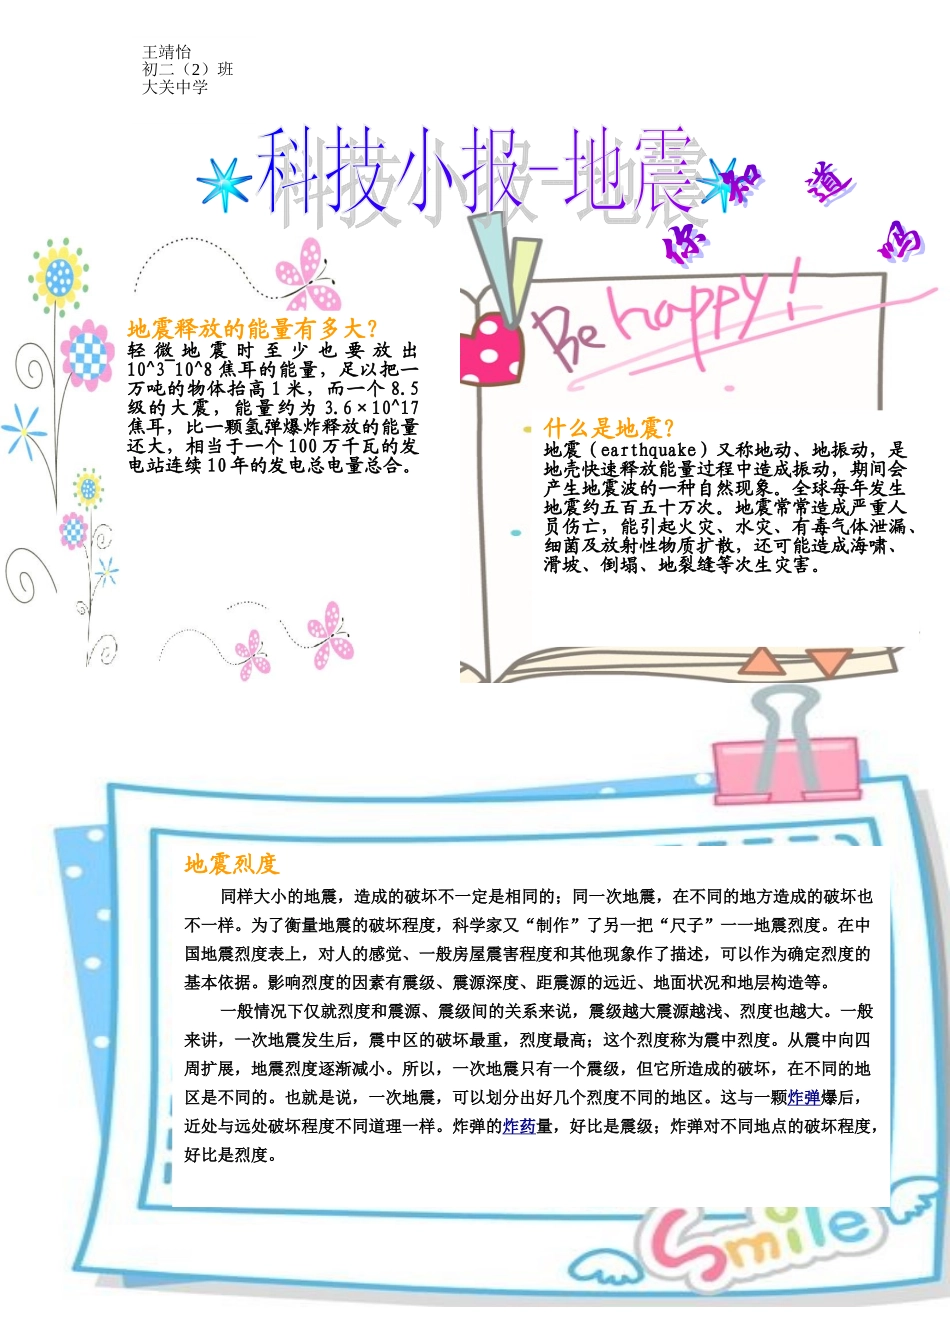 王靖怡
初二（2）班
大关中学
科技小报-地震
你知道吗
地震释放的能量有多大？
轻微地震时至少也要放出
10^3~10^8 焦耳的能量，足以把一
万吨的物体抬高 1 米，而一个 8.5
级的大震，能量约为 3.6×10^17
焦耳，比一颗氢弹爆炸释放的能量
还大，相当于一个 100 万千瓦的发
电站连续 10 年的发电总电量总合。
Be happy!
什么是地震？
地震（earthquake）又称地动、地振动，是
地壳快速释放能量过程中造成振动，期间会
产生地震波的一种自然现象。全球每年发生
地震约五百五十万次。地震常常造成严重人
员伤亡，能引起火灾、水灾、有毒气体泄漏、
细菌及放射性物质扩散，还可能造成海啸、
滑坡、倒塌、地裂缝等次生灾害。
地震烈度
同样大小的地震，造成的破坏不一定是相同的；同一次地震，在不同的地方造成的破坏也
不一样。为了衡量地震的破坏程度，科学家又“制作”了另一把“尺子”一一地震烈度。在中
国地震烈度表上，对人的感觉、一般房屋震害程度和其他现象作了描述，可以作为确定烈度的
基本依据。影响烈度的因素有震级、震源深度、距震源的远近、地面状况和地层构造等。
一般情况下仅就烈度和震源、震级间的关系来说，震级越大震源越浅、烈度也越大。一般
来讲，一次地震发生后，震中区的破坏最重，烈度最高；这个烈度称为震中烈度。从震中向四
周扩展，地震烈度逐渐减小。所以，一次地震只有一个震级，但它所造成的破坏，在不同的地
区是不同的。也就是说，一次地震，可以划分出好几个烈度不同的地区。这与一颗炸弹爆后，
近处与远处破坏程度不同道理一样。炸弹的炸药量，好比是震级；炸弹对不同地点的破坏程度，
好比是烈度。
Smile